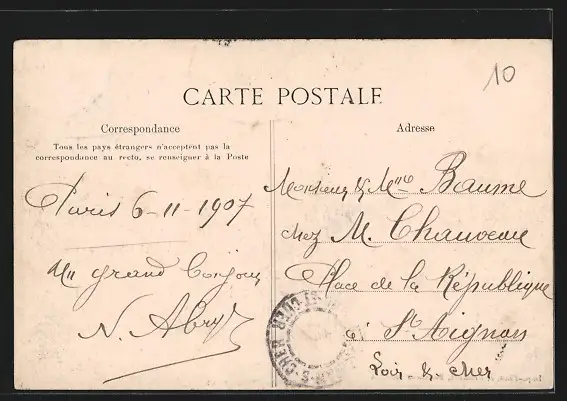 10
CARTE POSTALE
Correspondance
Tous les pays étrangers n'acceptent pas la
correspondance au recto, se renseigner à la Poste
Paris 6-11-1907
Un grand bonjour
N.
Adresse
Monsieur & Mme Baume
chez M. Chauveau
Place de la République
à St Aignan
Loir & cher